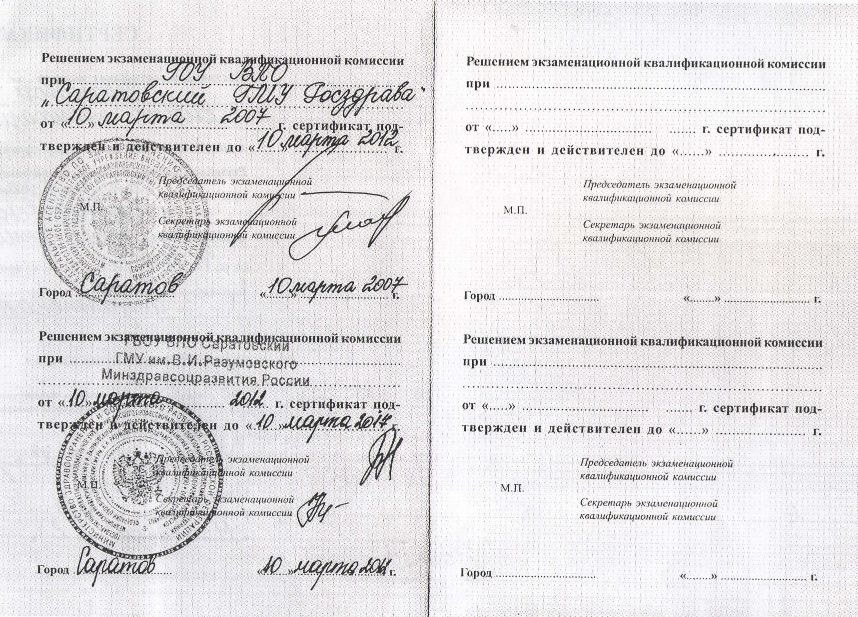 Решением экзаменационной квалификационной комиссии
при ГОУ ВПО
„Саратовский ГМУ Росздрава“
от «10» марта 2007 г. сертификат под-
твержден и действителен до «10» марта 2012 г.
Председатель экзаменационной
квалификационной комиссии
М.П.
Секретарь экзаменационной
квалификационной комиссии
Город Саратов «10» марта 2007 г.
Решением экзаменационной квалификационной комиссии
ГБОУ ВПО Саратовский
при ГМУ им. В.И.Разумовского
Минздравсоцразвития России
от «10» марта 2012 г. сертификат под-
твержден и действителен до «10» марта 2017 г.
Председатель экзаменационной
квалификационной комиссии
М.П.
Секретарь экзаменационной
квалификационной комиссии
Город Саратов «10» марта г.
Решением экзаменационной квалификационной комиссии
при
от «.....» г. сертификат под-
твержден и действителен до «......» г.
Председатель экзаменационной
квалификационной комиссии
М.П.
Секретарь экзаменационной
квалификационной комиссии
Город «......» г.
Решением экзаменационной квалификационной комиссии
при
от «.....» г. сертификат под-
твержден и действителен до «......» г.
Председатель экзаменационной
квалификационной комиссии
М.П.
Секретарь экзаменационной
квалификационной комиссии
Город «......» г.